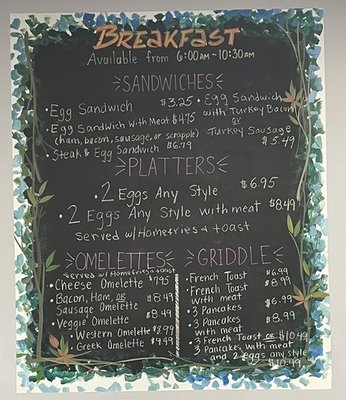 BREAKFAST
Available from 6:00AM-10:30AM
SANDWICHES
• Egg Sandwich $3.25
• Egg Sandwich with Meat $4.75
(ham, bacon, sausage, or scrapple)
• Steak & Egg Sandwich $6.79
• Egg Sandwich
with Turkey Bacon
or
Turkey Sausage
$5.49
PLATTERS
• 2 Eggs Any Style $6.95
• 2 Eggs Any Style with meat $8.49
Served w/ Homefries & toast
OMELETTES
Served w/ Homefries & toast
• Cheese Omelette $7.95
• Bacon, Ham, OR
Sausage Omelette $8.49
• Veggie Omelette $8.49
• Western Omelette $8.99
• Greek Omelette $9.49
GRIDDLE
• French Toast $6.99
• French Toast $8.99
with meat
• 3 Pancakes $6.99
• 3 Pancakes $8.99
with meat
• 3 French Toast OR $10.49
3 Pancakes with meat
and 2 eggs any style
$10.49